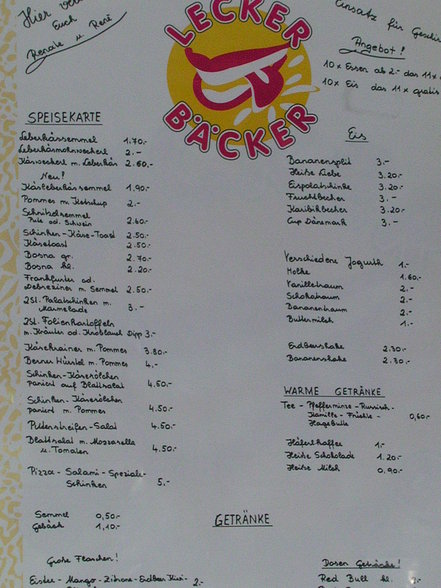 Hier
Euch
Renate u. René
LECKER
BÄCKER
Einsatz für Geschirr
Angebot!
10x Essen ab 2.- das 11x
10x Eis das 11x gratis
SPEISEKARTE
Leberkässemmel 1.70.-
Leberkäsmohnweckerl 2.-
Käsweckerl m. Leberkäs 2.60.-
Neu!
Käsleberkässemmel 1.90.-
Pommes m. Ketchup 2.-
Schnitzelsemmel
Pute od. Schwein 2.60.-
Schinken-Käse-Toast 2.50.-
Käsetoast 2.50.-
Bosna gr. 2.70.-
Bosna kl. 2.20.-
Frankfurter od.
Debreziner m. Semmel 2.50.-
2St. Palatschinken m.
Marmelade 3.-
2St. Folienkartoffeln
m. Kräuter od. Knoblauch Dipp 3.-
Käsekrainer m. Pommes 3.80.-
Berner Würstel m. Pommes 4.-
Schinken-Käseröllchen
paniert auf Blattsalat 4.50.-
Schinken-Käseröllchen
paniert m. Pommes 4.50.-
Putenstreifen-Salat 4.50.-
Blattsalat m. Mozzarella
u. Tomaten 4.50.-
Pizza-Salami-Speziale-
Schinken 5.-
Semmel 0,50.-
Gebäck 1,10.-
Große Flaschen!
Eistee-Mango-Zitrone-Erdbeer Kiwi- 2.-
Eis
Bananensplit 3.-
Heiße Liebe 3.20.-
Eispalatschinke 3.20.-
Fruchtbecher 3.-
Karibikbecher 3.20.-
Cup Dänemark 3.-
Verschiedene Jogurth 1.-
Molke 1.60.-
Vanilletraum 2.-
Schokotraum 2.-
Bananentraum 2.-
Buttermilch 1.-
Erdbeershake 2.30.-
Bananenshake 2.30.-
WARME GETRÄNKE
Tee-Pfefferminze-Russisch-
Kamille-Früchte-
Hagebutte 0,60.-
Häferlkaffee 1.-
Heiße Schokolade 1.20.-
Heiße Milch 0.90.-
GETRÄNKE
Dosen Getränke!
Red Bull kl.